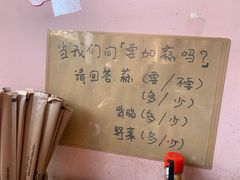 当我们问「要加蒜吗?
请回答:蒜(要/不要)
(多/少)
背脂(多/少)
野菜(多/少)